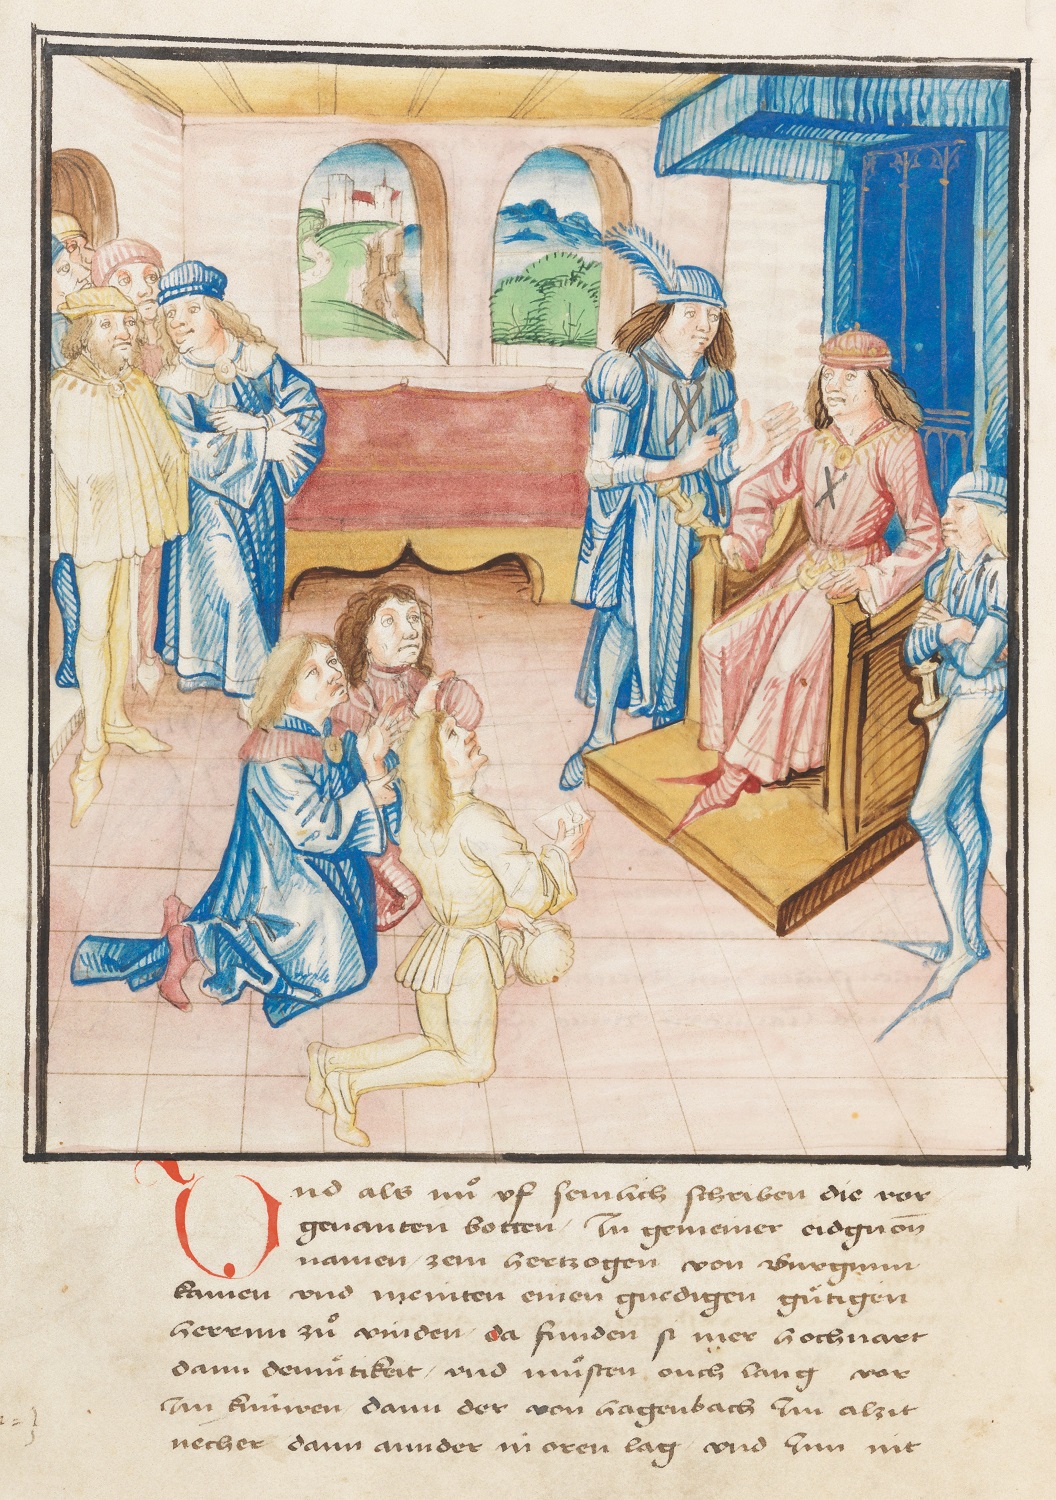 Und als nuͦ uf semlich schriben die vor
genanten botten / In gemeiner eidgnōn
namen / zem hertzogen von burgunn
kamen und meinten einen gnedigen guͤtigen
herrnn zuͦ vinden / da funden si mer hochvart
dann demuͤtikeit / und muͦsten ouch lang vor
Im knuͤwen dann der von hagenbach Im alzit
necher dann ander in oren lag und Inn nit